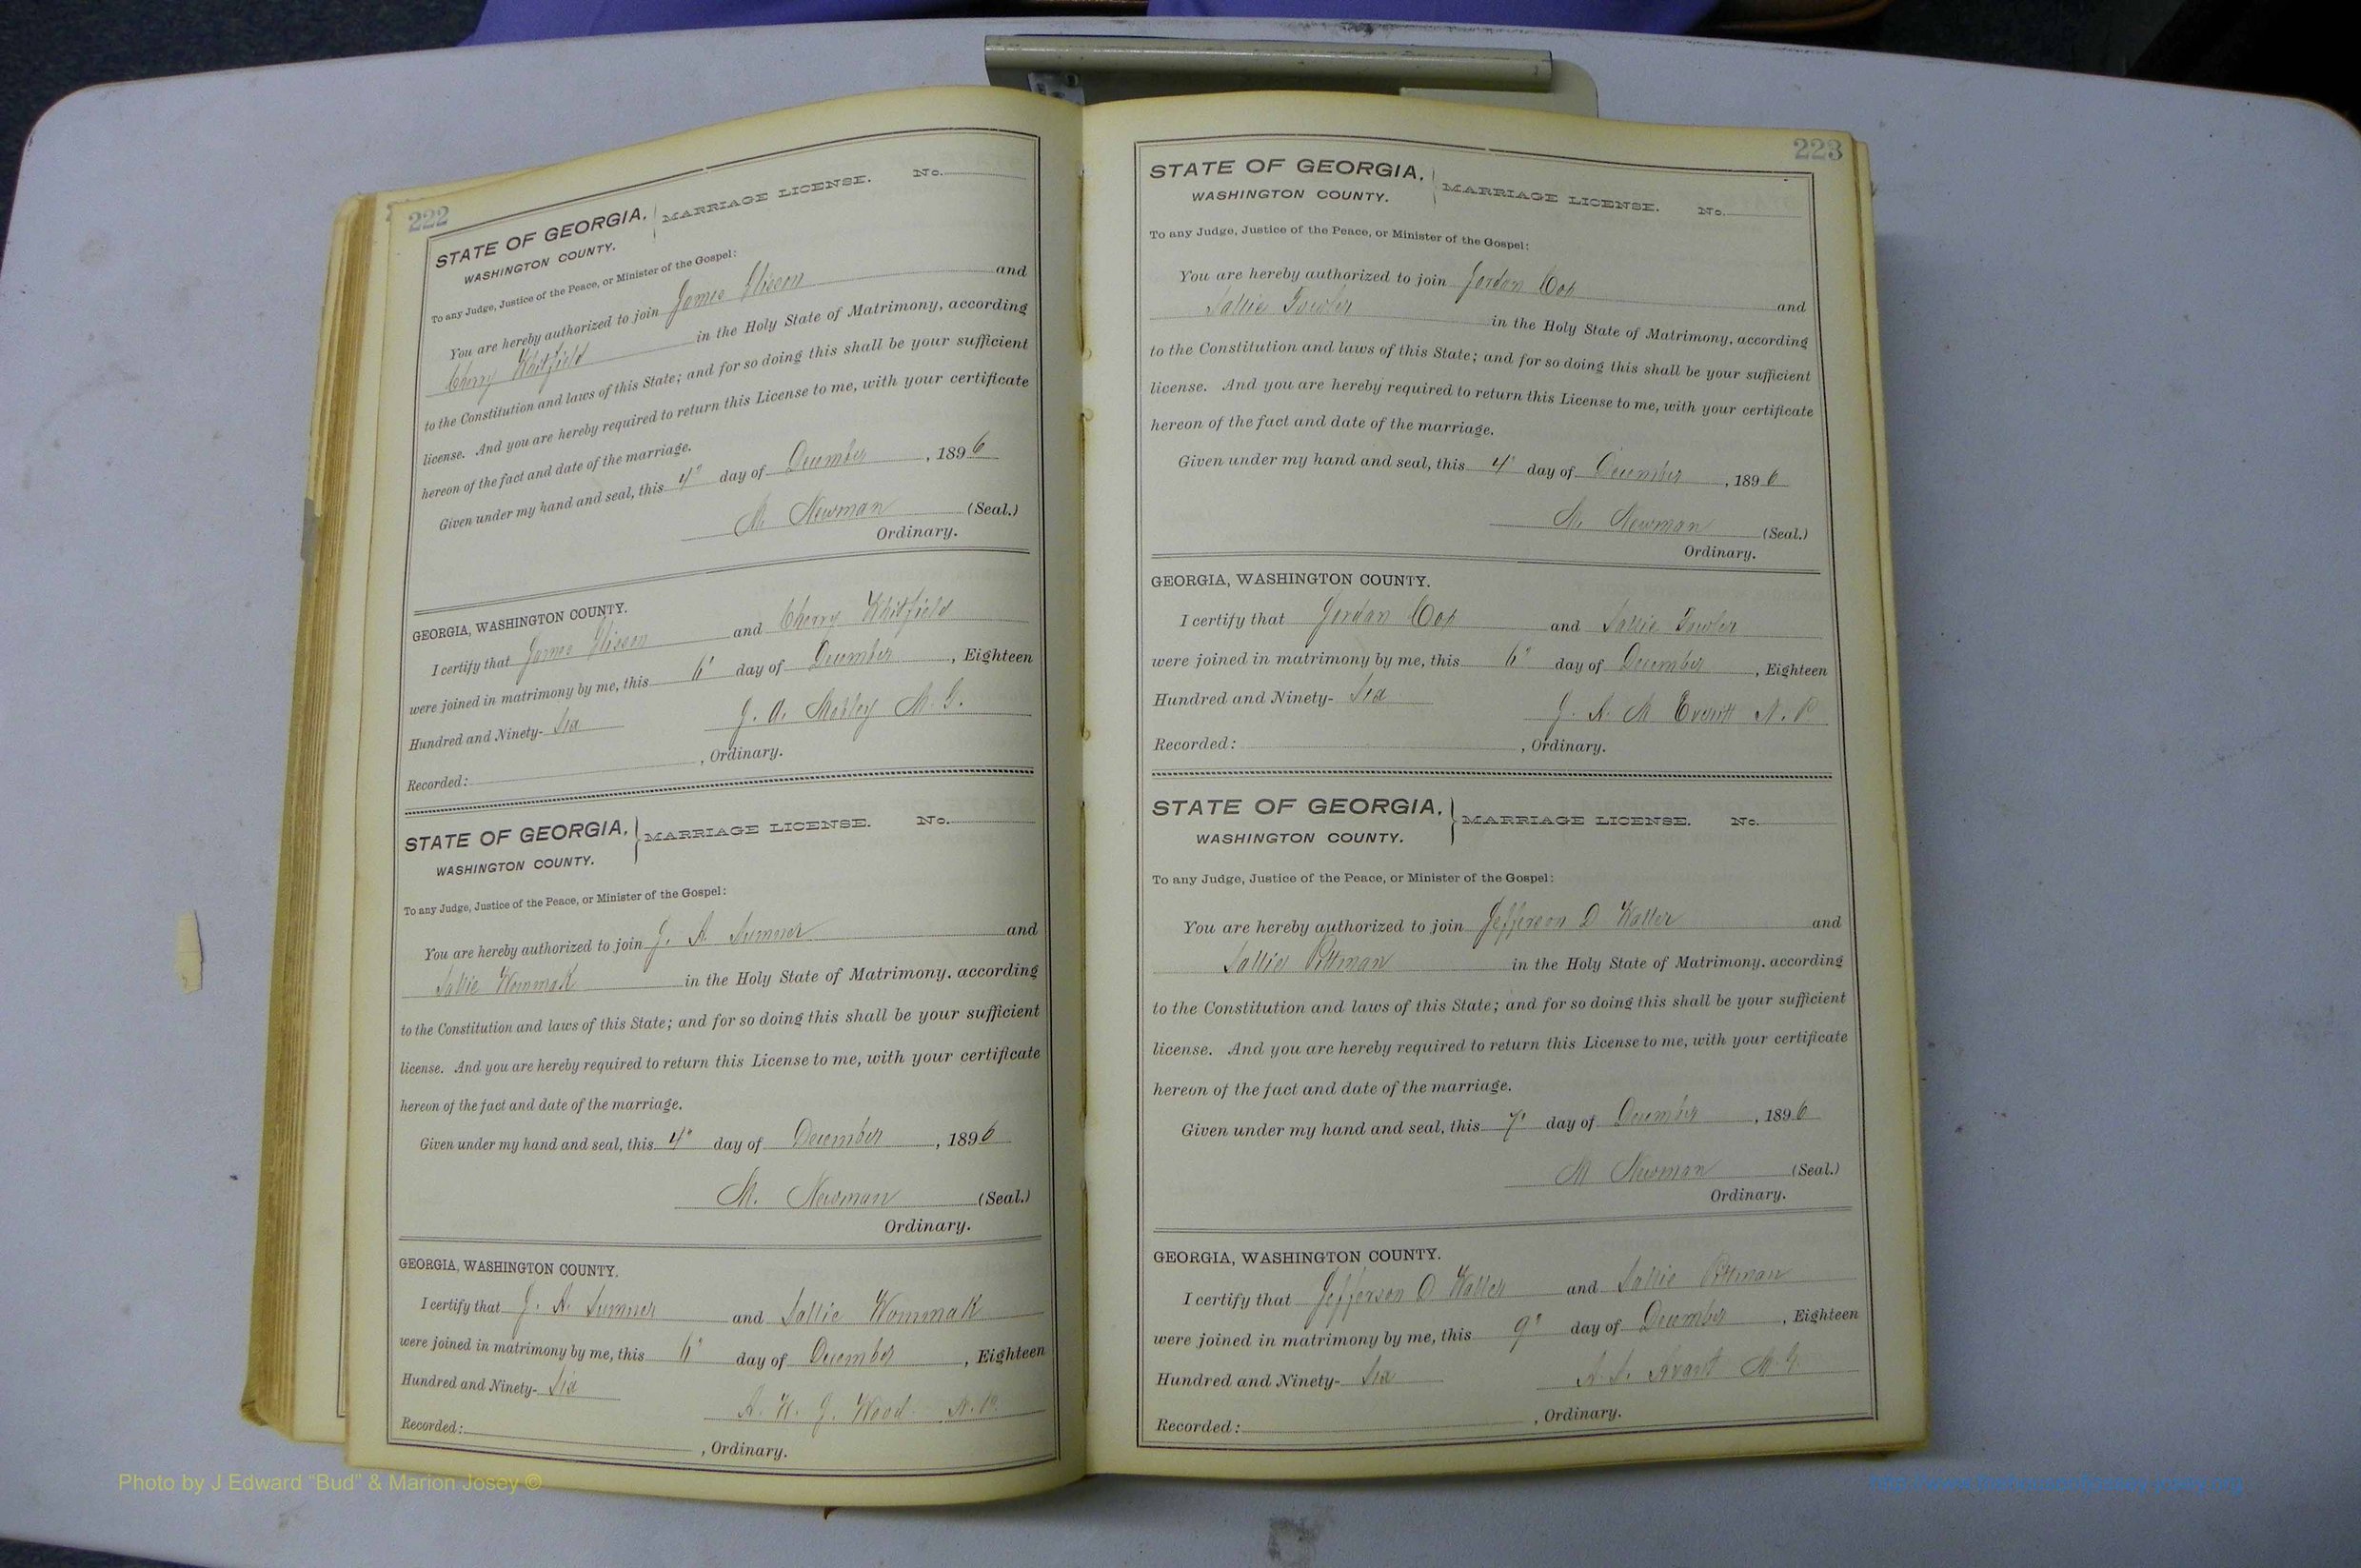 222
STATE OF GEORGIA, MARRIAGE LICENSE. No.
WASHINGTON COUNTY.
To any Judge, Justice of the Peace, or Minister of the Gospel:
You are hereby authorized to join James Glisson and
Cherry Whitfield in the Holy State of Matrimony, according
to the Constitution and laws of this State; and for so doing this shall be your sufficient
license. And you are hereby required to return this License to me, with your certificate
hereon of the fact and date of the marriage.
Given under my hand and seal, this 4" day of December, 1896
M. Newman (Seal.)
Ordinary.
GEORGIA, WASHINGTON COUNTY.
I certify that James Glisson and Cherry Whitfield
were joined in matrimony by me, this 6" day of December, Eighteen
Hundred and Ninety-Six J. A. Mobley M. G.
Recorded: , Ordinary.
STATE OF GEORGIA, MARRIAGE LICENSE. No.
WASHINGTON COUNTY.
To any Judge, Justice of the Peace, or Minister of the Gospel:
You are hereby authorized to join J. A. Sumner and
Sallie Wommak in the Holy State of Matrimony. according
to the Constitution and laws of this State; and for so doing this shall be your sufficient
license. And you are hereby required to return this License to me, with your certificate
hereon of the fact and date of the marriage.
Given under my hand and seal, this 4" day of December, 1896
M. Newman (Seal.)
Ordinary.
GEORGIA, WASHINGTON COUNTY.
I certify that J. A. Sumner and Sallie Wommak
were joined in matrimony by me, this 6" day of December, Eighteen
Hundred and Ninety-Six
A. W. J. Wood N. P.
Recorded: , Ordinary.
223
STATE OF GEORGIA, MARRIAGE LICENSE. No.
WASHINGTON COUNTY.
To any Judge, Justice of the Peace, or Minister of the Gospel:
You are hereby authorized to join Jordan Cox
Sallie Fowler and
in the Holy State of Matrimony, according
to the Constitution and laws of this State; and for so doing this shall be your sufficient
license. And you are hereby required to return this License to me, with your certificate
hereon of the fact and date of the marriage.
Given under my hand and seal, this 4" day of December, 1896
M. Newman (Seal.)
Ordinary.
GEORGIA, WASHINGTON COUNTY.
I certify that Jordan Cox and Sallie Fowler
were joined in matrimony by me, this 6" day of December, Eighteen
Hundred and Ninety-Six J. A. M Everitt N. P
Recorded: , Ordinary.
STATE OF GEORGIA, MARRIAGE LICENSE. No.
WASHINGTON COUNTY.
To any Judge, Justice of the Peace, or Minister of the Gospel:
You are hereby authorized to join Jefferson D Waller and
Sallie Pittman in the Holy State of Matrimony. according
to the Constitution and laws of this State; and for so doing this shall be your sufficient
license. And you are hereby required to return this License to me, with your certificate
hereon of the fact and date of the marriage.
Given under my hand and seal, this 7" day of December, 1896
M Newman (Seal.)
Ordinary.
GEORGIA, WASHINGTON COUNTY.
I certify that Jefferson D Waller and Sallie Pittman
were joined in matrimony by me, this 9" day of December, Eighteen
Hundred and Ninety-Six Avant M. G.
Recorded: , Ordinary.
Photo by J Edward "Bud" & Marion Josey ©